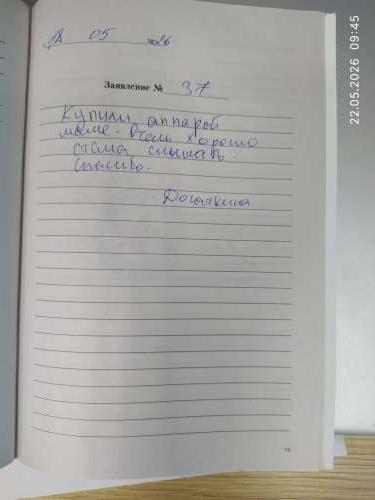 18 05 2026
Заявление № 37
Купили аппарат
маме. Очень хорошо
стала слышать.
Спасибо.
22.05.2026 09:45